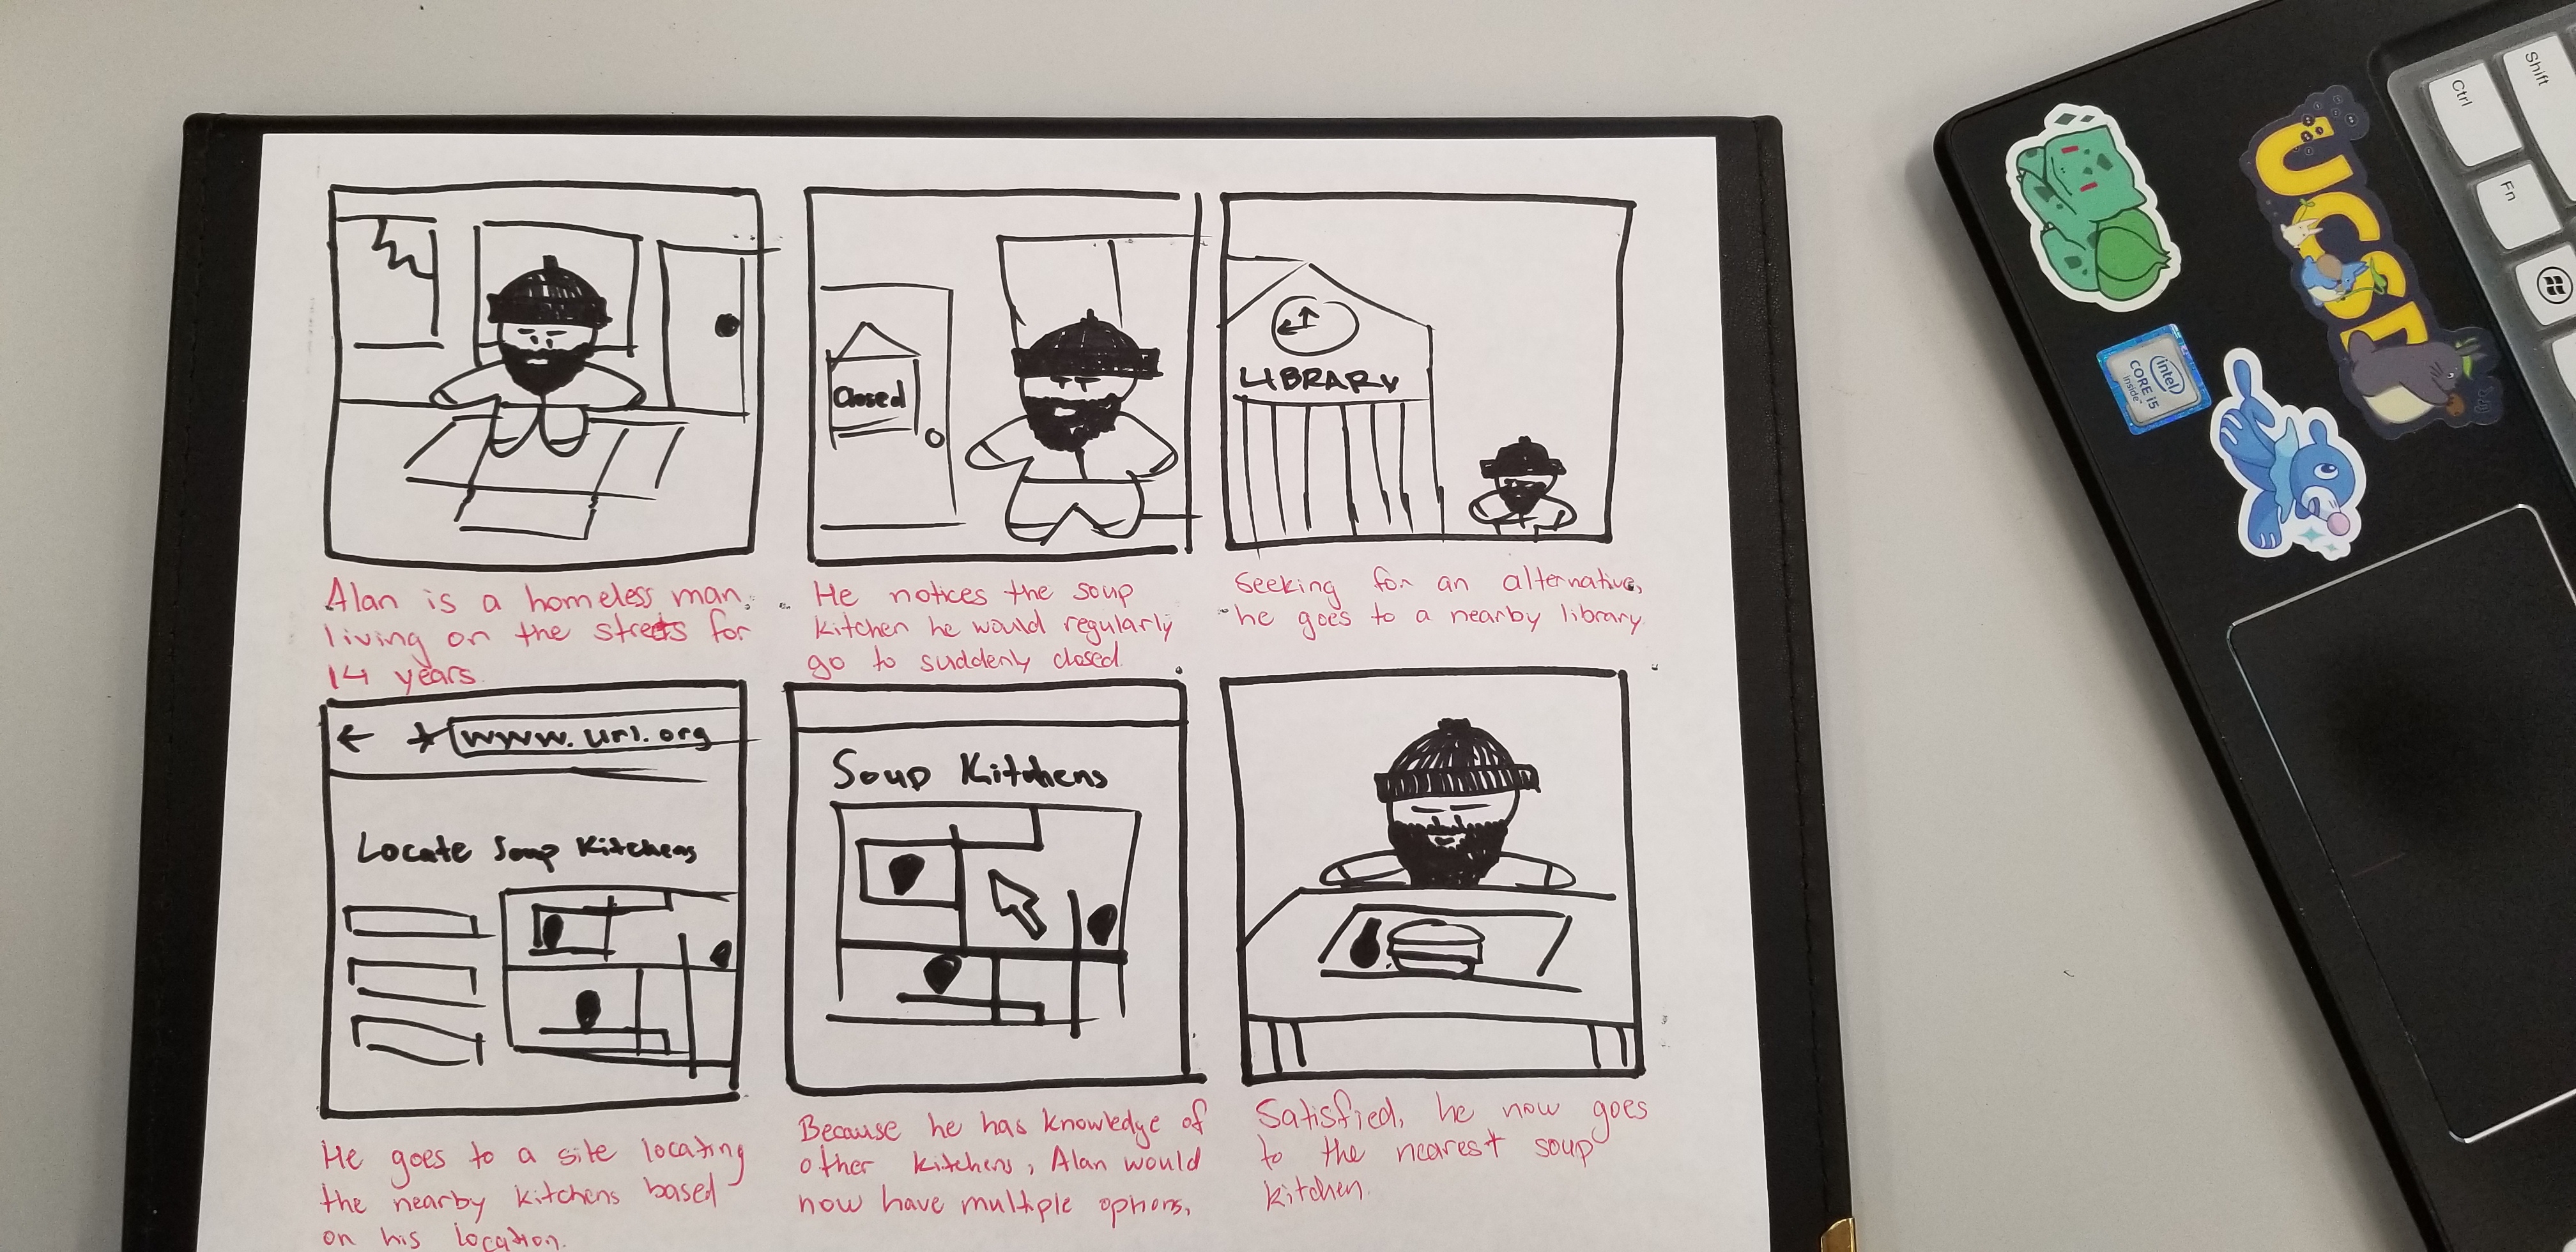 Closed
LIBRARY
Alan is a homeless man,
living on the streets for
14 years.
He notices the soup
kitchen he would regularly
go to suddenly closed.
Seeking for an alternative,
he goes to a nearby library
← → www.url.org
Locate Soup Kitchens
Soup Kitchens
He goes to a site locating
the nearby kitchens based
on his location.
Because he has knowledge of
other kitchens, Alan would
now have multiple options.
Satisfied, he now goes
to the nearest soup
kitchen.
Shift
Ctrl
Fn
UCSD
intel
CORE i5
inside